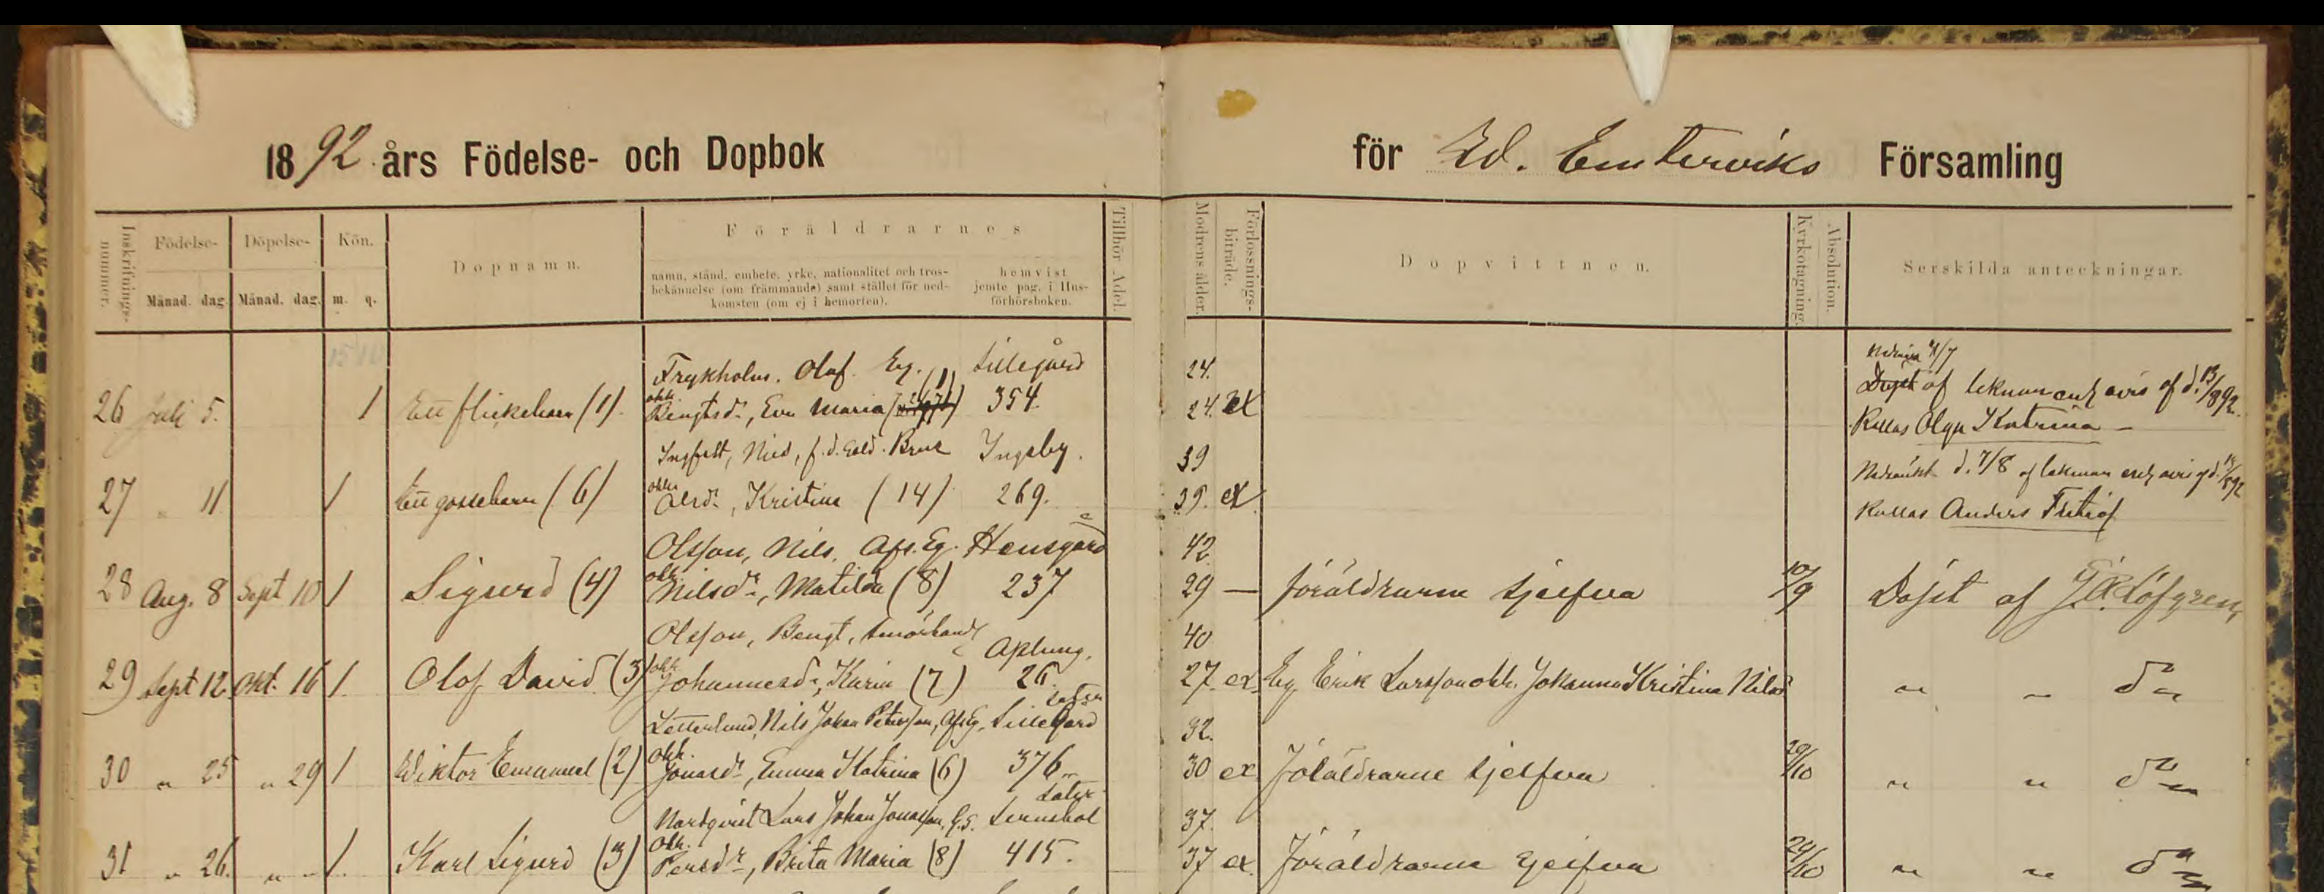 1892 års Födelse- och Dopbok för Ed. Emterviks Församling
Inskrifnings-nummer.
Födelse-
Månad. dag
Döpelse-
Månad. dag.
Kön.
m. q.
Dopnamn.
Föräldrarnes
namn, stånd, embete, yrke, nationalitet och tros-
bekännelse (om främmande) samt stället för ned-
komsten (om ej i hemorten).
hemvist
jemte pag. i Hus-
förhörsboken.
Tillhör Adel.
Modrens ålder.
Förlossnings-biträde.
Dopvittnen.
Kyrkotagning.
Absolution.
Serskilda anteckningar.
Frykholm, Olof. Eg. (1) Lillegård 24.
26 Juli 5. 1 Ett flickebarn (1). Bengtsdr, Eva Maria 354. 24. ex
af lekman enl. avis af d. 13/8 92.
Kallas Olga Katrina
Nils, f.d. Bruk Ingsby. 39
27 " 11 1 Ett gossebarn (6) Olsdr, Kristina (14) 269. 39. ex
d. 7/8 af lekman enl. avis af d.
Kallas Anders Fritiof
Olsson, Nils, Afs. Eg. Hensgård 42
28 Aug. 8 Sept 10 1 Sigurd (4) Nilsdr, Matilda (8) 237 29 — föräldrarne sjelfva 10/9 Döpt af Löfgren
Olsson, Bengt, Aplung. 40
29 Sept 12. Okt. 16 1. Olof David (3) Johannesdr, Karin (7) 26. 27. ex. Eg. Erik Larsson o. h. Johanna Kristina Nilsdr " " do
Zetterlund, Nils Johan Petersson, Afs. Eg. Lillegård 32.
30 " 25 " 29 1 Wiktor Emanuel (2) Jonasdr, Emma Katrina (6) 376. 30 ex Föräldrarne sjelfva 29/10 " " do
Nordqvist Lars Johan Jonasson, 37.
31 " 26. " " 1. Karl Sigurd (3) Persdr, Brita Maria (8) 415. 37 ex. Föräldrarne sjelfva 29/10 " " do